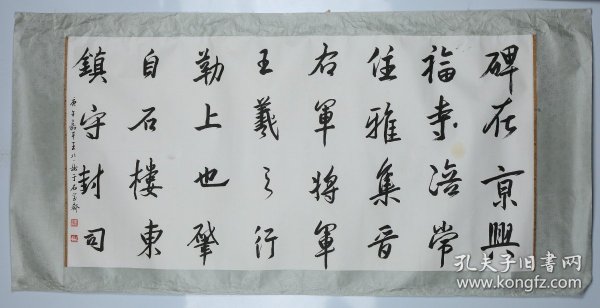 碑在京興
福寺陪常
住雅集晉
右軍將軍
王羲之行
勒上也肇
自石樓東
鎮守封司
庚午
孔夫子旧书网
www.kongfz.com